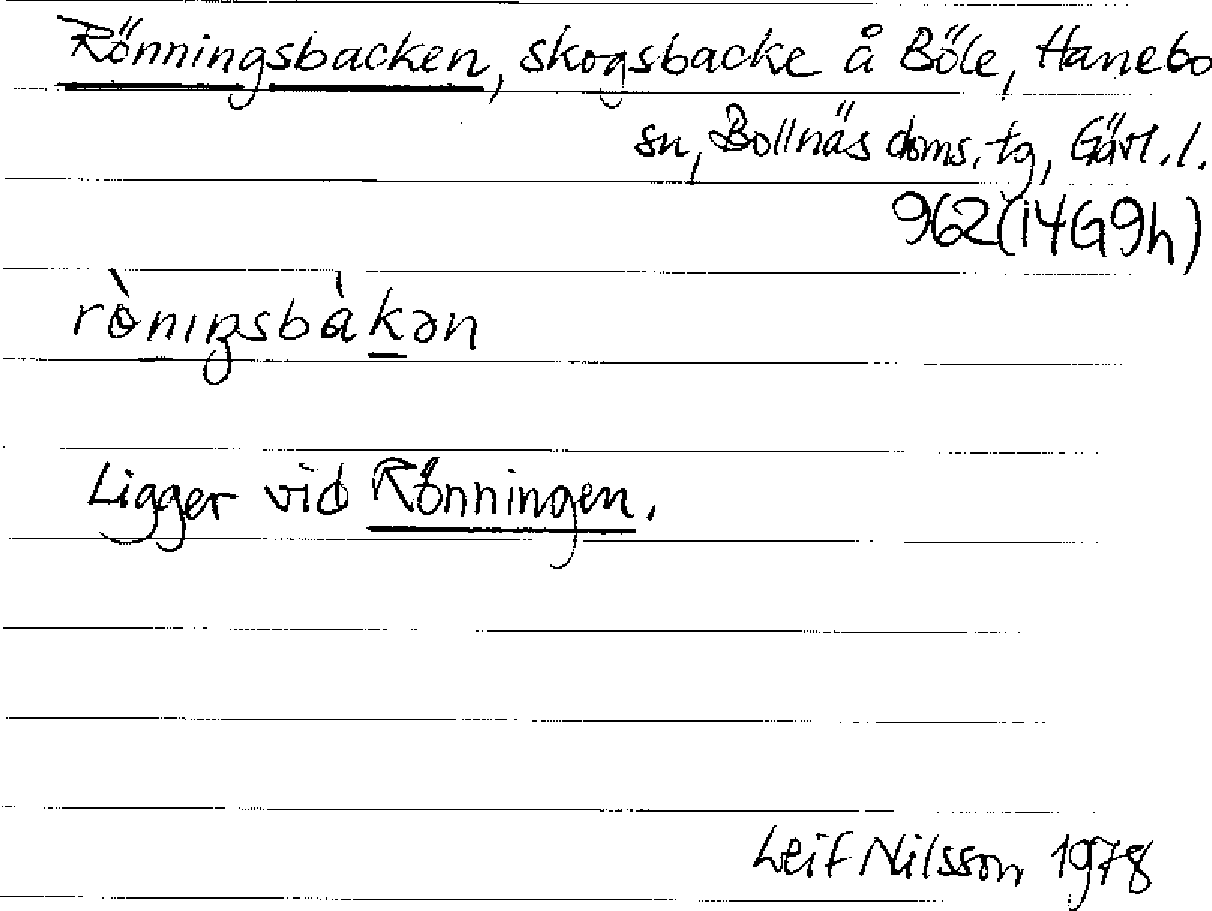 Rönningsbacken, skogsbacke å Böle, Hanebo
sn, Bollnäs doms. tg, Gävl. l.
962 (14G9h)
rø̀nıŋsbàkən
Ligger vid Rönningen.
Leif Nilsson 1978